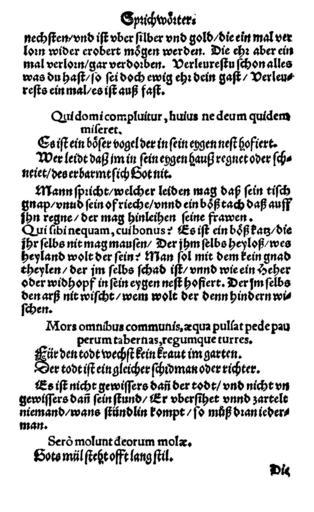 Sprichwörter.
nechsten/vnd ist vber silber vnd gold/die ein mal ver
lorn wider erobert mögen werden. Die ehr aber ein
mal verlorn/gar verdorben. Verleurestu schon alles
was du hast/so sei doch ewig ehr dein gast/ Verleu-
rests ein mal/es ist auß fast.
Qui domi compluitur, huius ne deum quidem
miseret.
Es ist ein böser vogel der in sein eygen nest hofiert.
Wer leidt daß im in sein eygen hauß regnet oder sch-
neiet/des erbarmt sich Got nit.
Mann spricht/welcher leiden mag daß sein tisch
gnap/vnnd sein of rieche/vnnd ein böß tach daß auff
jhn regne/der mag hinleihen seine frawen.
Qui sibi nequam, cui bonus? Es ist ein böß katz/die
jhr selbs nit mag mausen/ Der jhm selbs heyloß/wes
heyland wolt der sein? Man sol mit dem kein gnad
theylen/ der jm selbs schad ist/vnnd wie ein Heher
oder widhopf in sein eygen nest hofiert. Der jm selbs
den arß nit wischt/wem wolt der denn hindern wi-
schen.
Mors omnibus communis, æqua pulsat pede pau
perum tabernas, regumque turres.
Für den todt wechst kein kraut im garten.
Der todt ist ein gleicher schidman oder richter.
Es ist nicht gewissers dañ der todt/vnd nicht vn
gewissers dañ sein stund/ Er vbersihet vnnd zartelt
niemand/wans stündlin kompt/so můß dran ieder-
man.
Serò molunt deorum molæ.
Gots mül steht offt lang stil.
Die